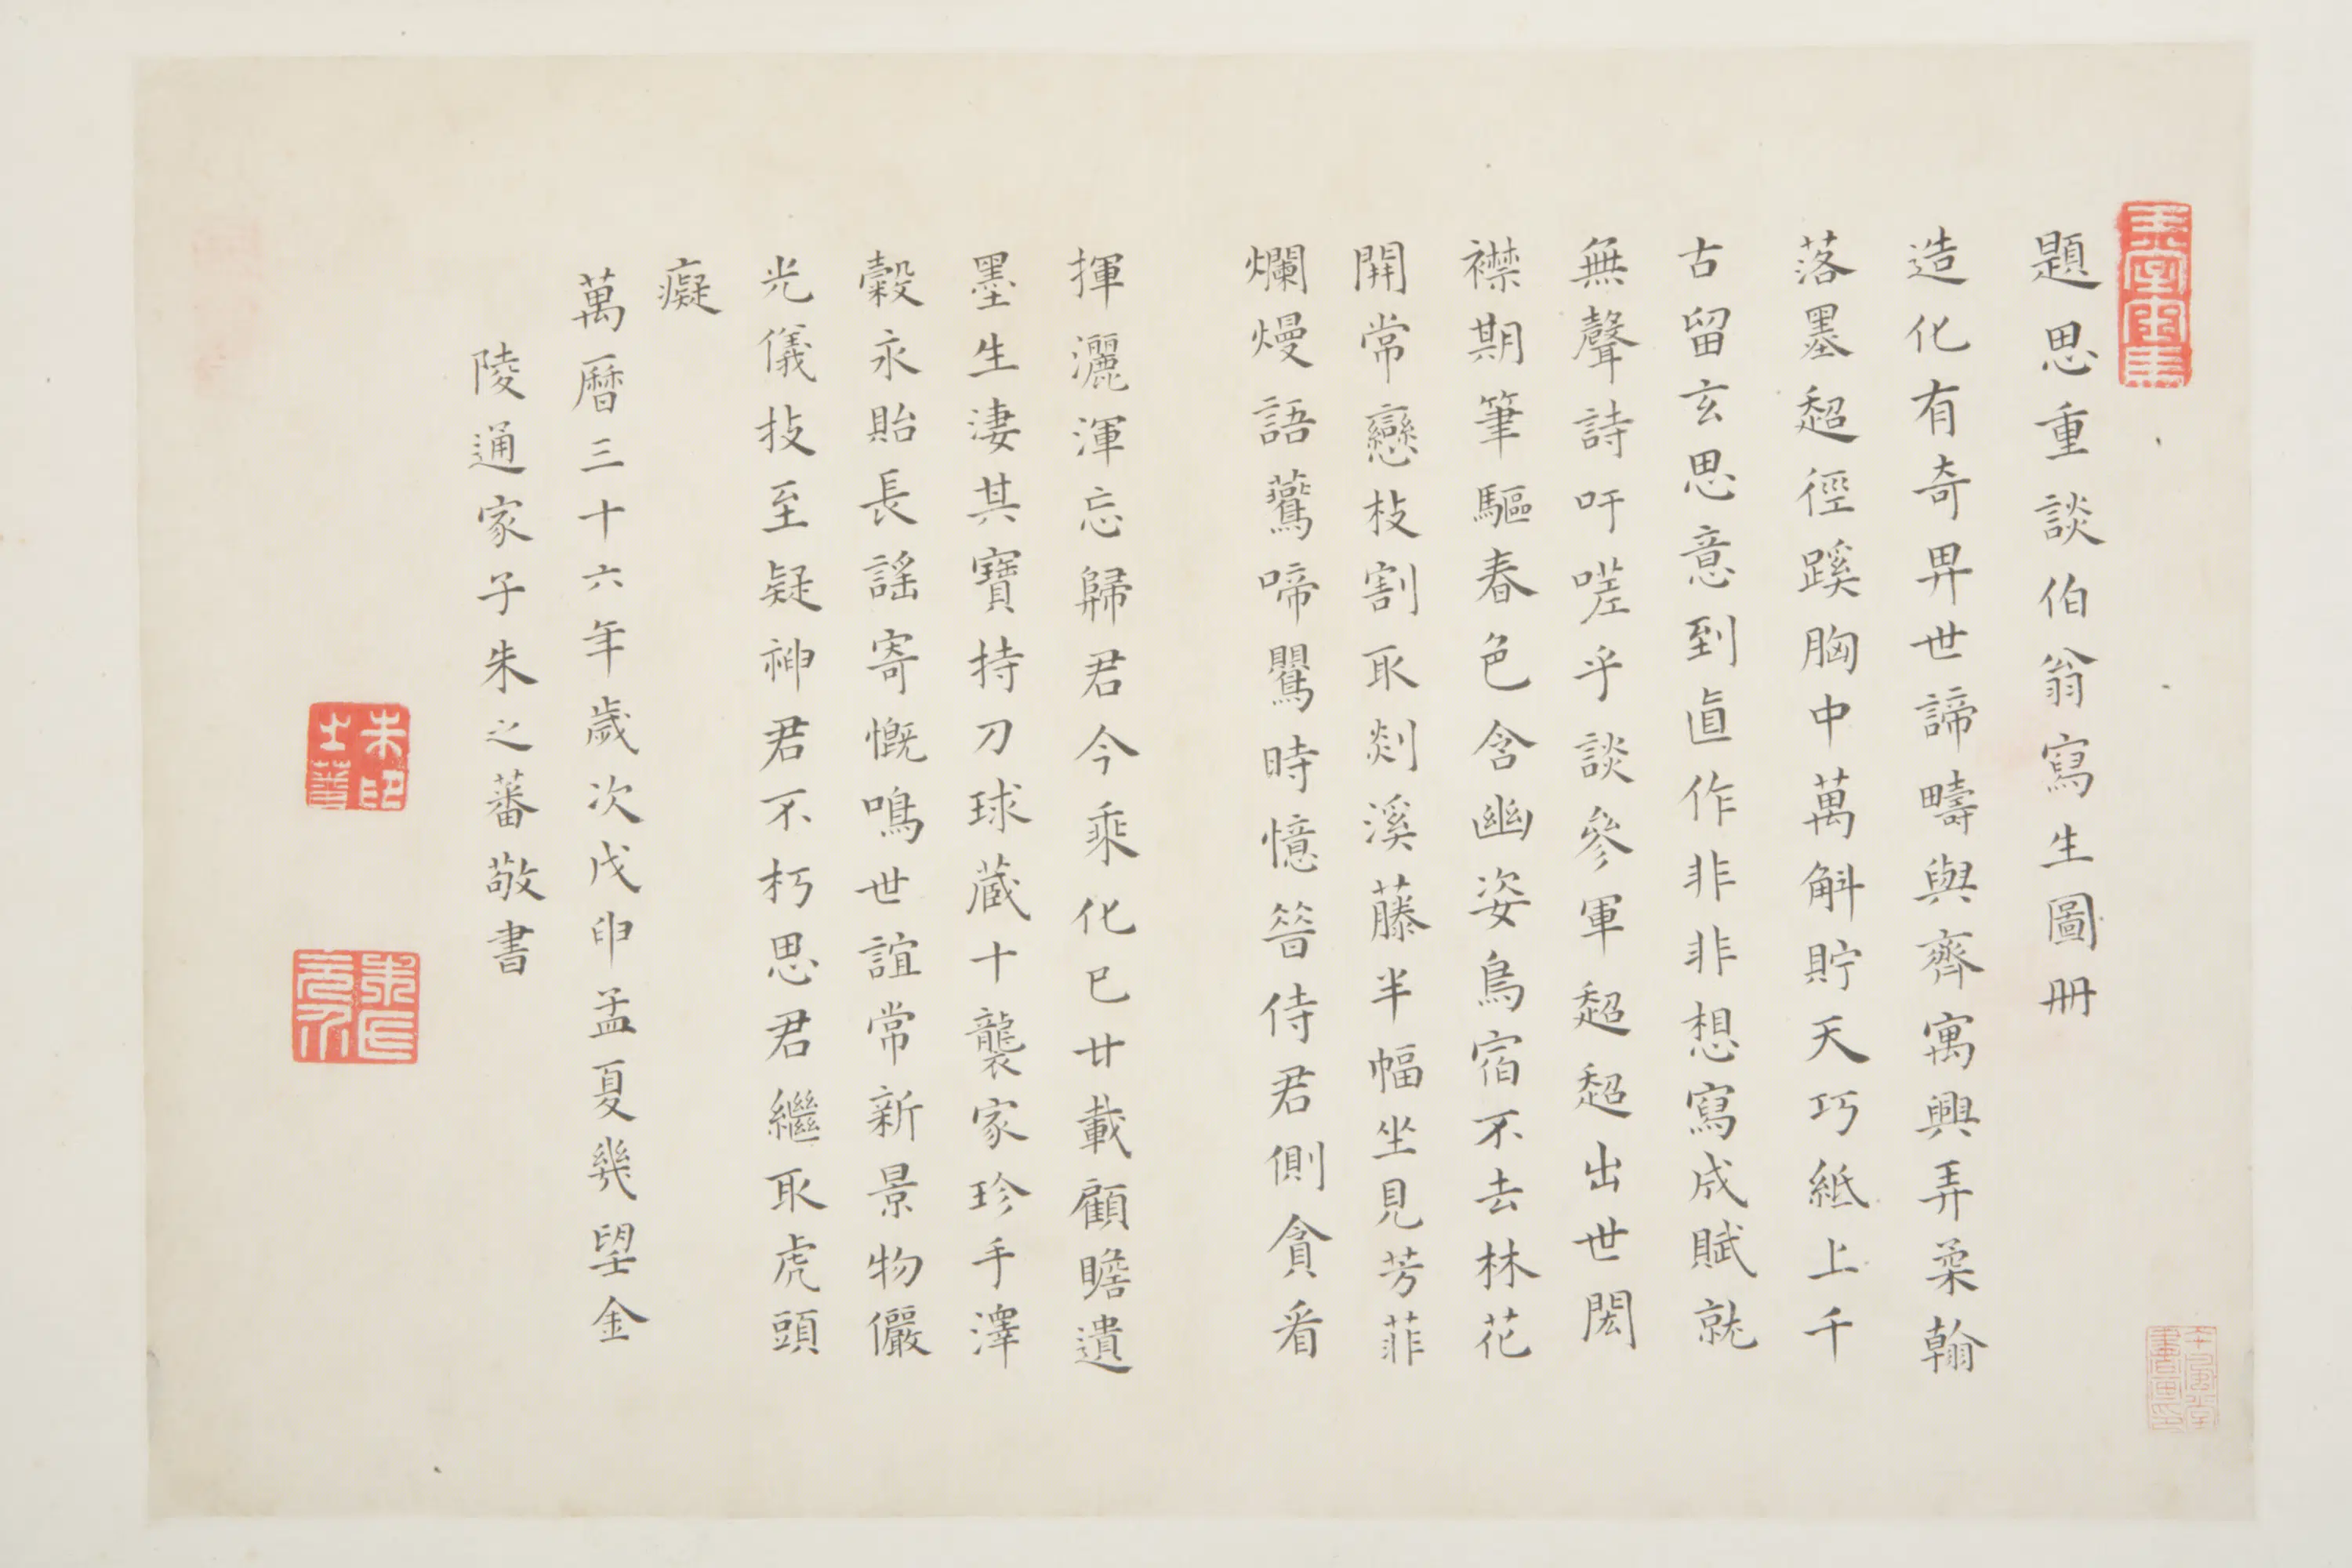 題思重談伯翁寫生圖冊
造化有奇畀世諦疇與齊寓興弄柔翰
落墨超徑蹊胸中萬斛貯天巧紙上千
古留玄思意到直作非非想寫成賦就
無聲詩吁嗟乎談參軍超超出世閎
襟期筆驅春色含幽姿鳥宿不去林花
開常戀枝割取剡溪藤半幅坐見芳菲
爛熳語鶯啼鸎時憶昝侍君側貪看
揮灑渾忘歸君今乘化已廿載顧瞻遺
墨生淒其寶持刀球藏十襲家珍手澤
糓永貽長謡寄慨鳴世誼常新景物儼
光儀技至疑神君不朽思君繼取虎頭
癡
萬曆三十六年歲次戊申孟夏幾望金
陵通家子朱之蕃敬書
朱印之蕃
朱氏元介